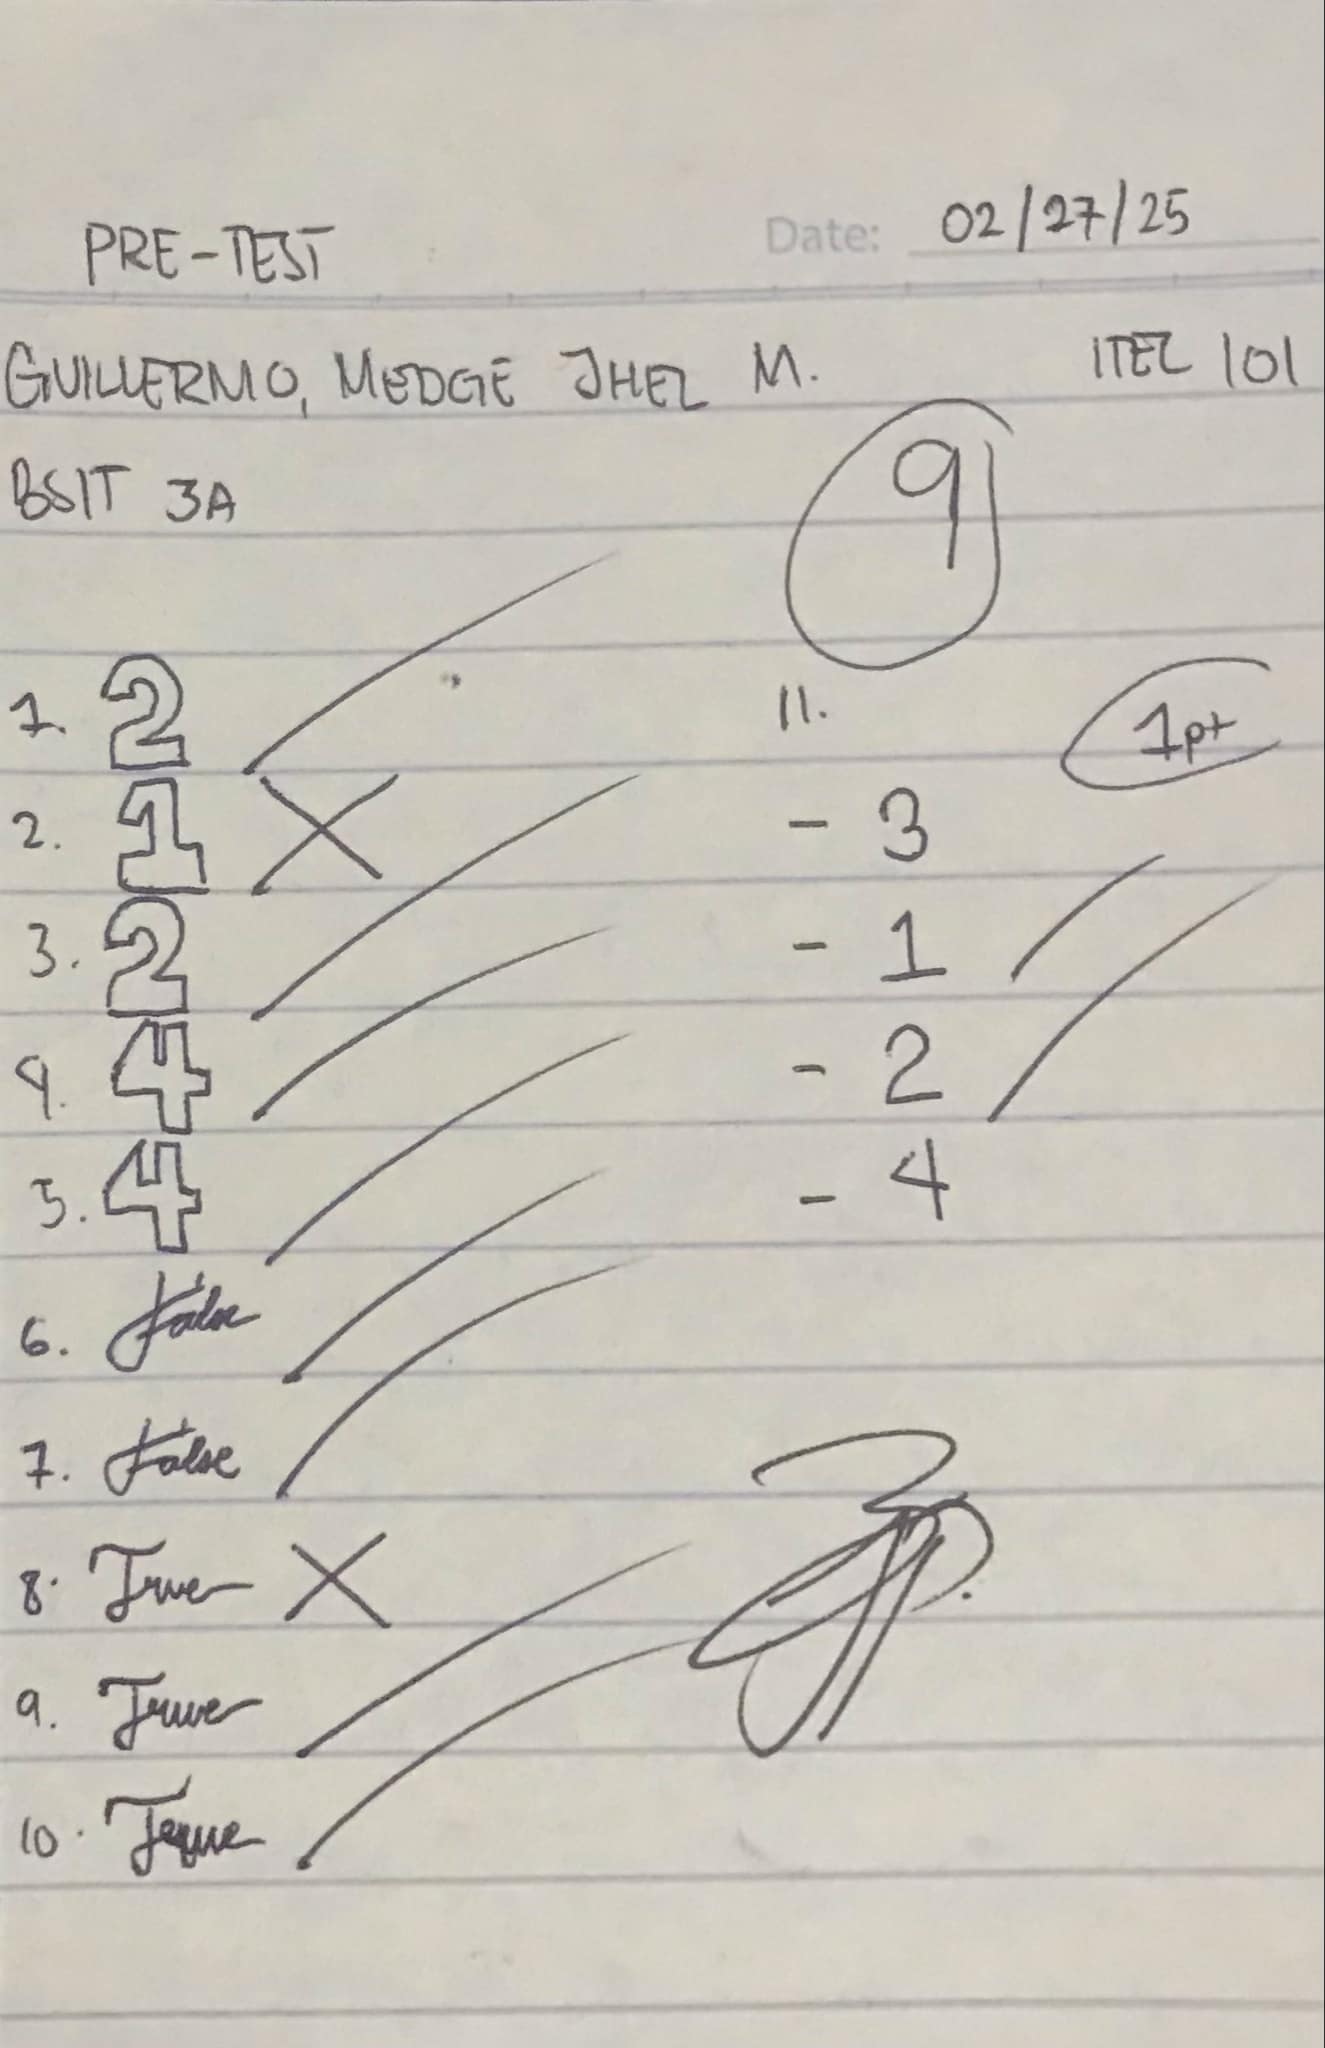 PRE-TEST
Date: 02/27/25
GUILLERMO, MEDGE JHEL M.
ITEL 101
BSIT 3A
9
1. 2
2. 1
3. 2
4. 4
5. 4
6. False
7. False
8. True
9. True
10. True
11.
1pt
- 3
- 1
- 2
- 4